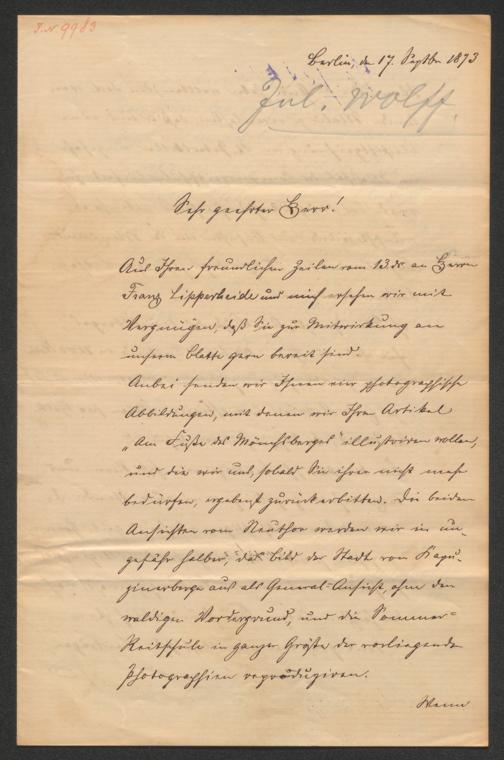 J.N 9983
Berlin, den 17. Septbr 1873
Jul. Wolff.
Sehr geehrter Herr!
Aus Ihren freundlichen Zeilen vom 13. ds. an Herrn
Franz Lipperheide und mich ersehen wir mit
Vergnügen, daß Sie zur Mitwirkung an
unserm Blatte gern bereit sind.
Anbei senden wir Ihnen vier photographische
Abbildungen, mit denen wir Ihre Artikel
„Am Fuße des Mönchsberges“ illustriren wollen,
und die wir uns, sobald Sie ihrer nicht mehr
bedürfen, ergebenst zurückerbitten. Die beiden
Ansichten vom Neuthor werden wir in un-
gefähr halber, das Bild der Stadt vom Kapu-
zinerberge aus als General-Ansicht, ohne den
waldigen Vordergrund, und die Sommer-
Reitschule in ganzer Größe der vorliegenden
Photographien reproduziren.
Wenn